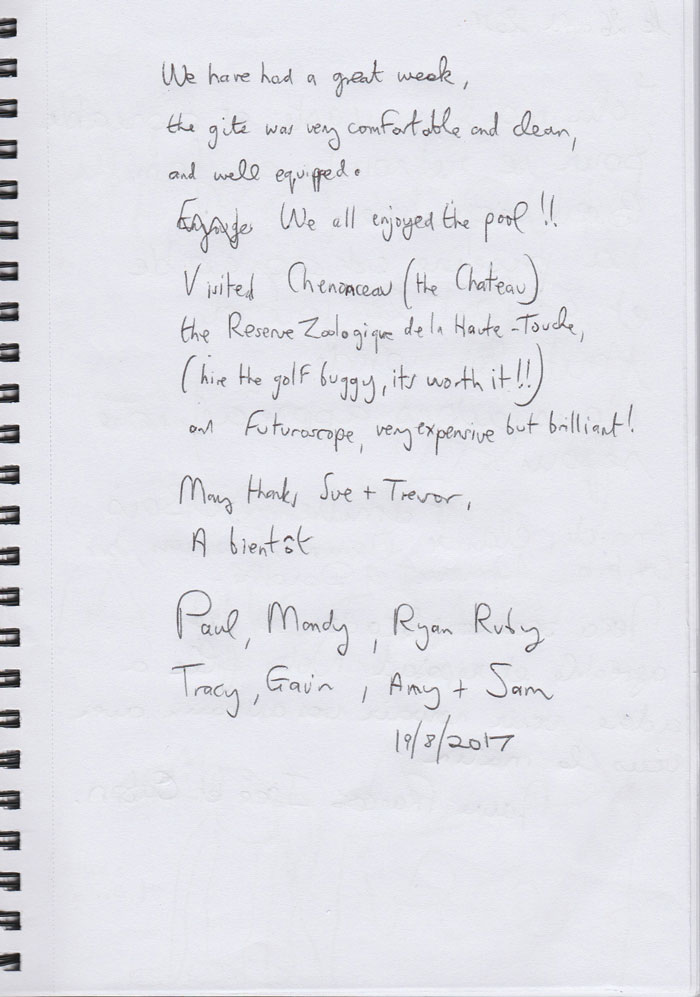 We have had a great week,
the gite was very comfortable and clean,
and well equipped.
We all enjoyed the pool !!
Visited Chenonceau (the Chateau)
the Reserve Zoologique de la Haute-Touche,
(hire the golf buggy, its worth it!!)
and Futuroscope, very expensive but brilliant!
Many thanks Sue + Trevor,
A bientôt
Paul, Mandy, Ryan Ruby
Tracy, Gavin, Amy + Sam
19/8/2017